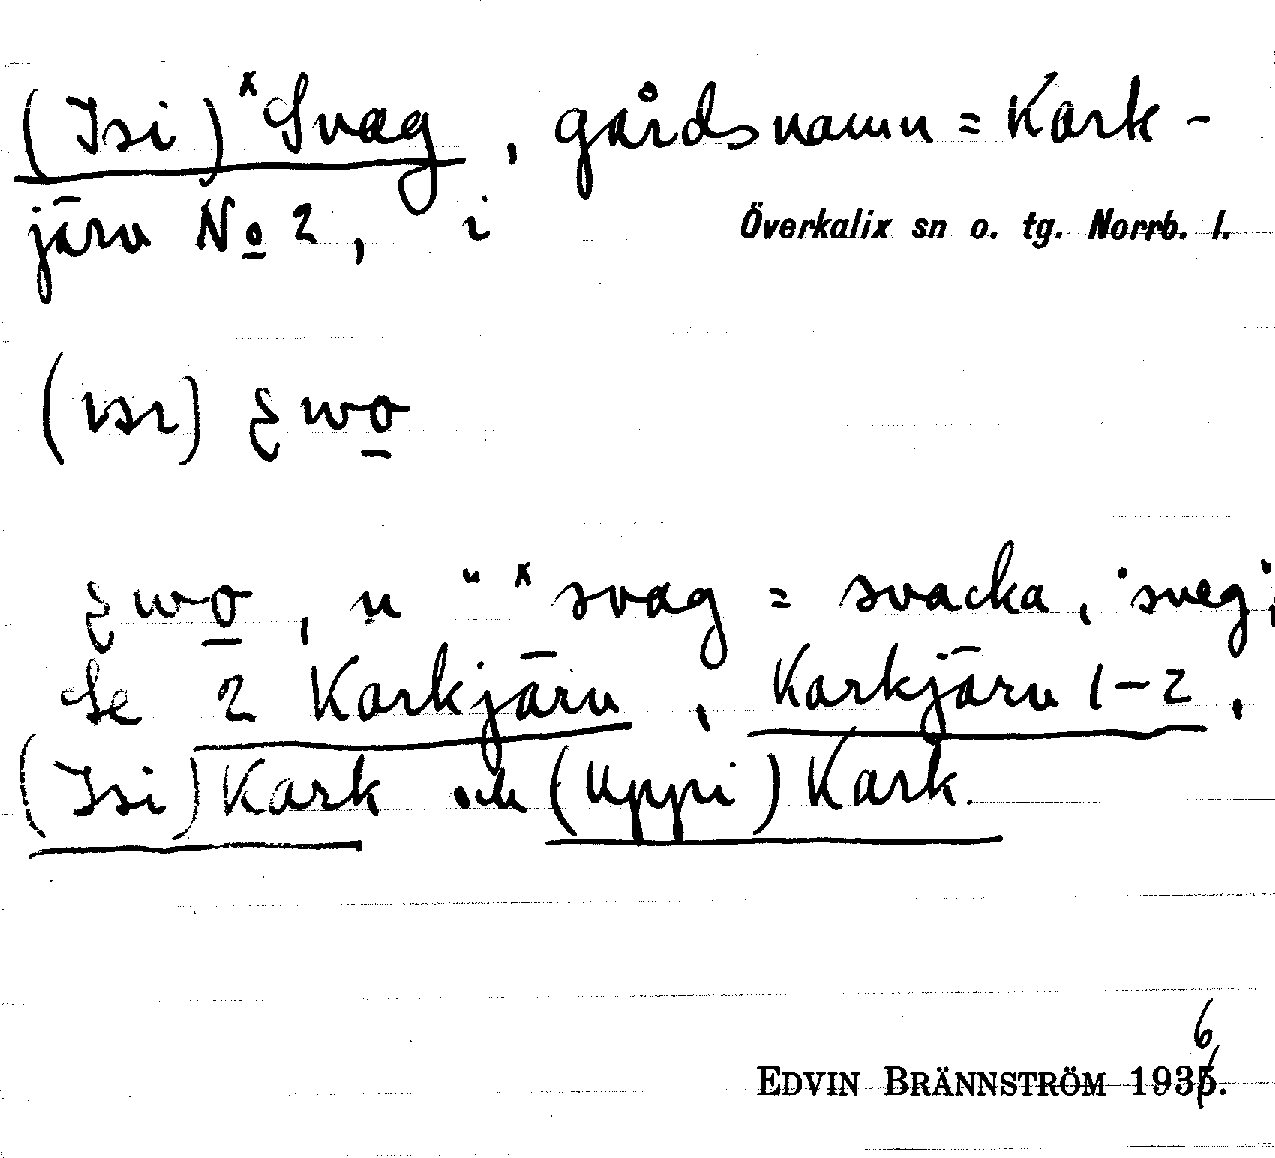 (Isi) ˣSvag, gårdsnamn = Kark-
järv No 2, i Överkalix sn o. tg. Norrb. l.
(ɪsɪ) ʒwo̲
ʒwo̲, n " ˣsvag = svacka, 'sveg';
Se 2 Karkjärv, Karkjärv 1–2,
(Isi) Kark och (Uppi) Kark.
EDVIN BRÄNNSTRÖM 1936.